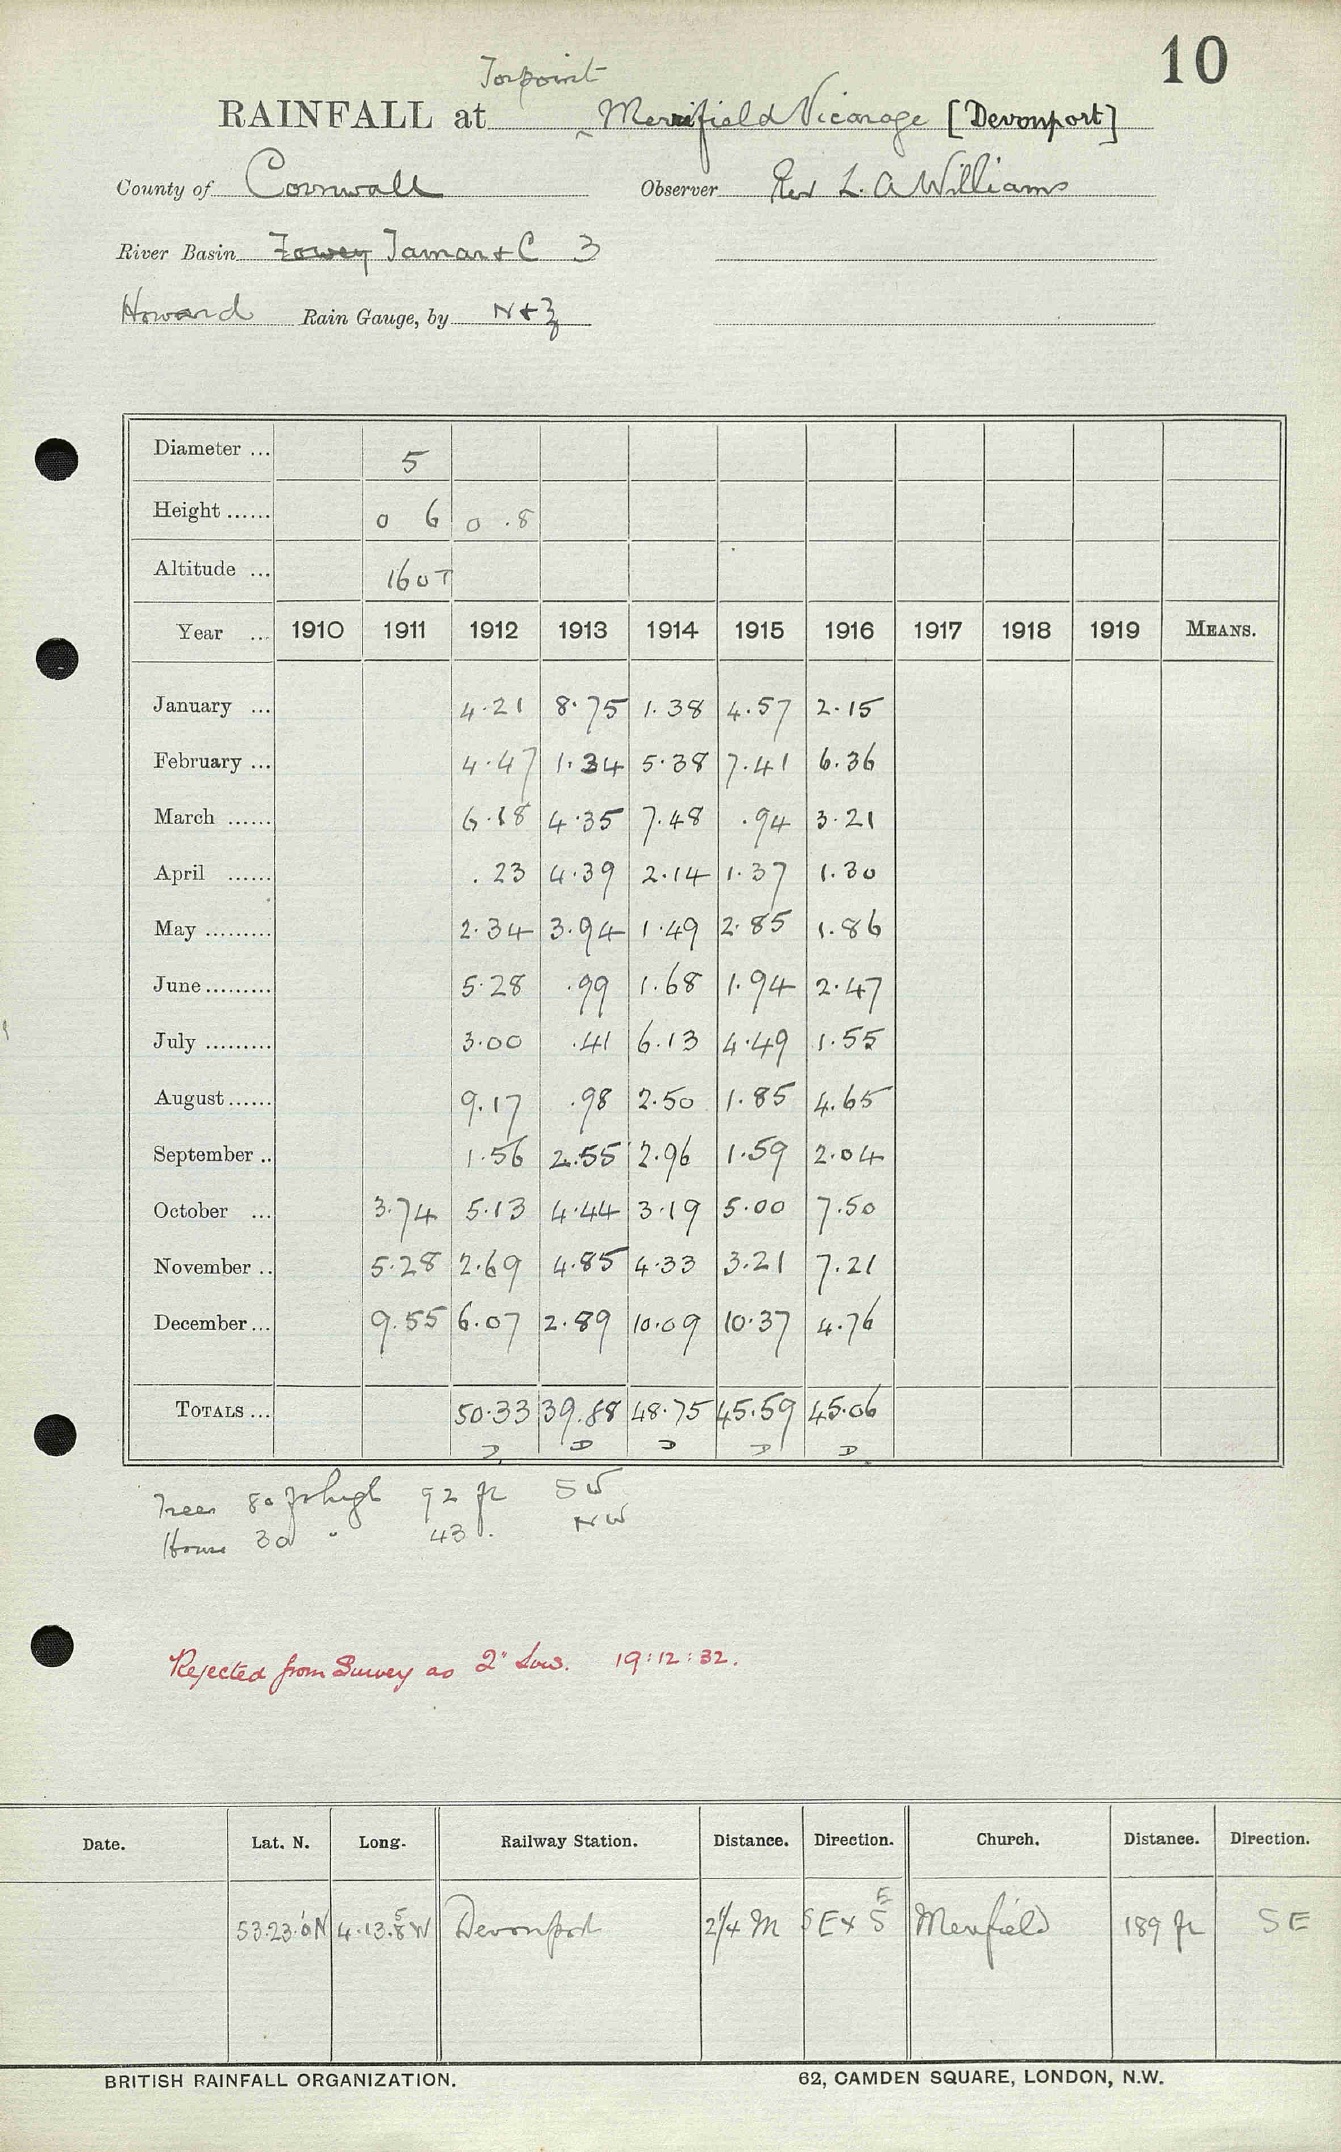 10
Torpoint
RAINFALL at Merrifield Vicarage [Devonport]
County of Cornwall Observer Rev L. A Williams
River Basin Fowey Tamar + C 3
Howard Rain Gauge, by N + Z
Diameter ... 5
Height ...... 0 6 0 .8
Altitude ... 160 T
Year ... 1910 1911 1912 1913 1914 1915 1916 1917 1918 1919 MEANS.
January ... 4.21 8.75 1.38 4.57 2.15
February ... 4.47 1.34 5.38 7.41 6.36
March ...... 6.18 4.35 7.48 .94 3.21
April ...... .23 4.39 2.14 1.37 1.30
May ......... 2.34 3.94 1.49 2.85 1.86
June ......... 5.28 .99 1.68 1.94 2.47
July ......... 3.00 .41 6.13 4.49 1.55
August ...... 9.17 .98 2.50 1.85 4.65
September .. 1.56 2.55 2.96 1.59 2.04
October ... 3.74 5.13 4.44 3.19 5.00 7.50
November .. 5.28 2.69 4.85 4.33 3.21 7.21
December ... 9.55 6.07 2.89 10.09 10.37 4.76
TOTALS ... 50.33 39.88 48.75 45.59 45.06
D D D D D
Trees 80 ft high 92 ft SW
House 30 " 43 . NW
Rejected from Survey as 2" Low. 19:12:32.
Date. Lat. N. Long. Railway Station. Distance. Direction. Church. Distance. Direction.
53.23.0 N 4.13.8 W Devonport 2 1/4 M SE x S Merifield 189 ft SE
BRITISH RAINFALL ORGANIZATION. 62, CAMDEN SQUARE, LONDON, N.W.